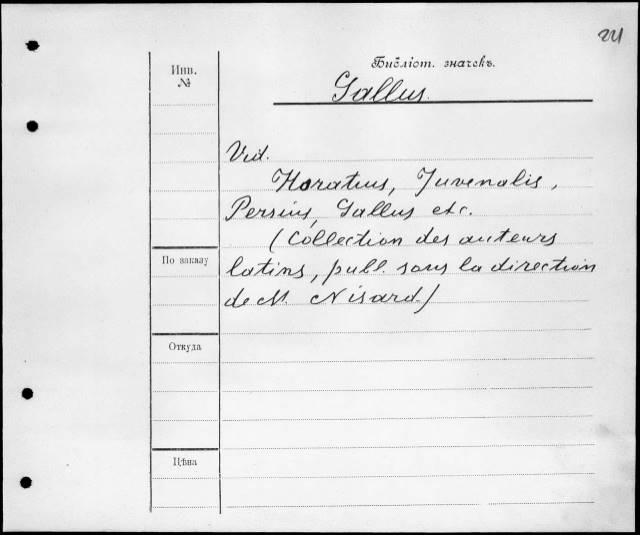 Инв.
№
Библіот. значекъ.
Gallus.
Vid.
Horatius, Juvenalis,
Persius, Gallus etc.
(Collection des auteurs
latins, publ. sous la direction
de M. Nisard)
По заказу
Откуда
Цѣна